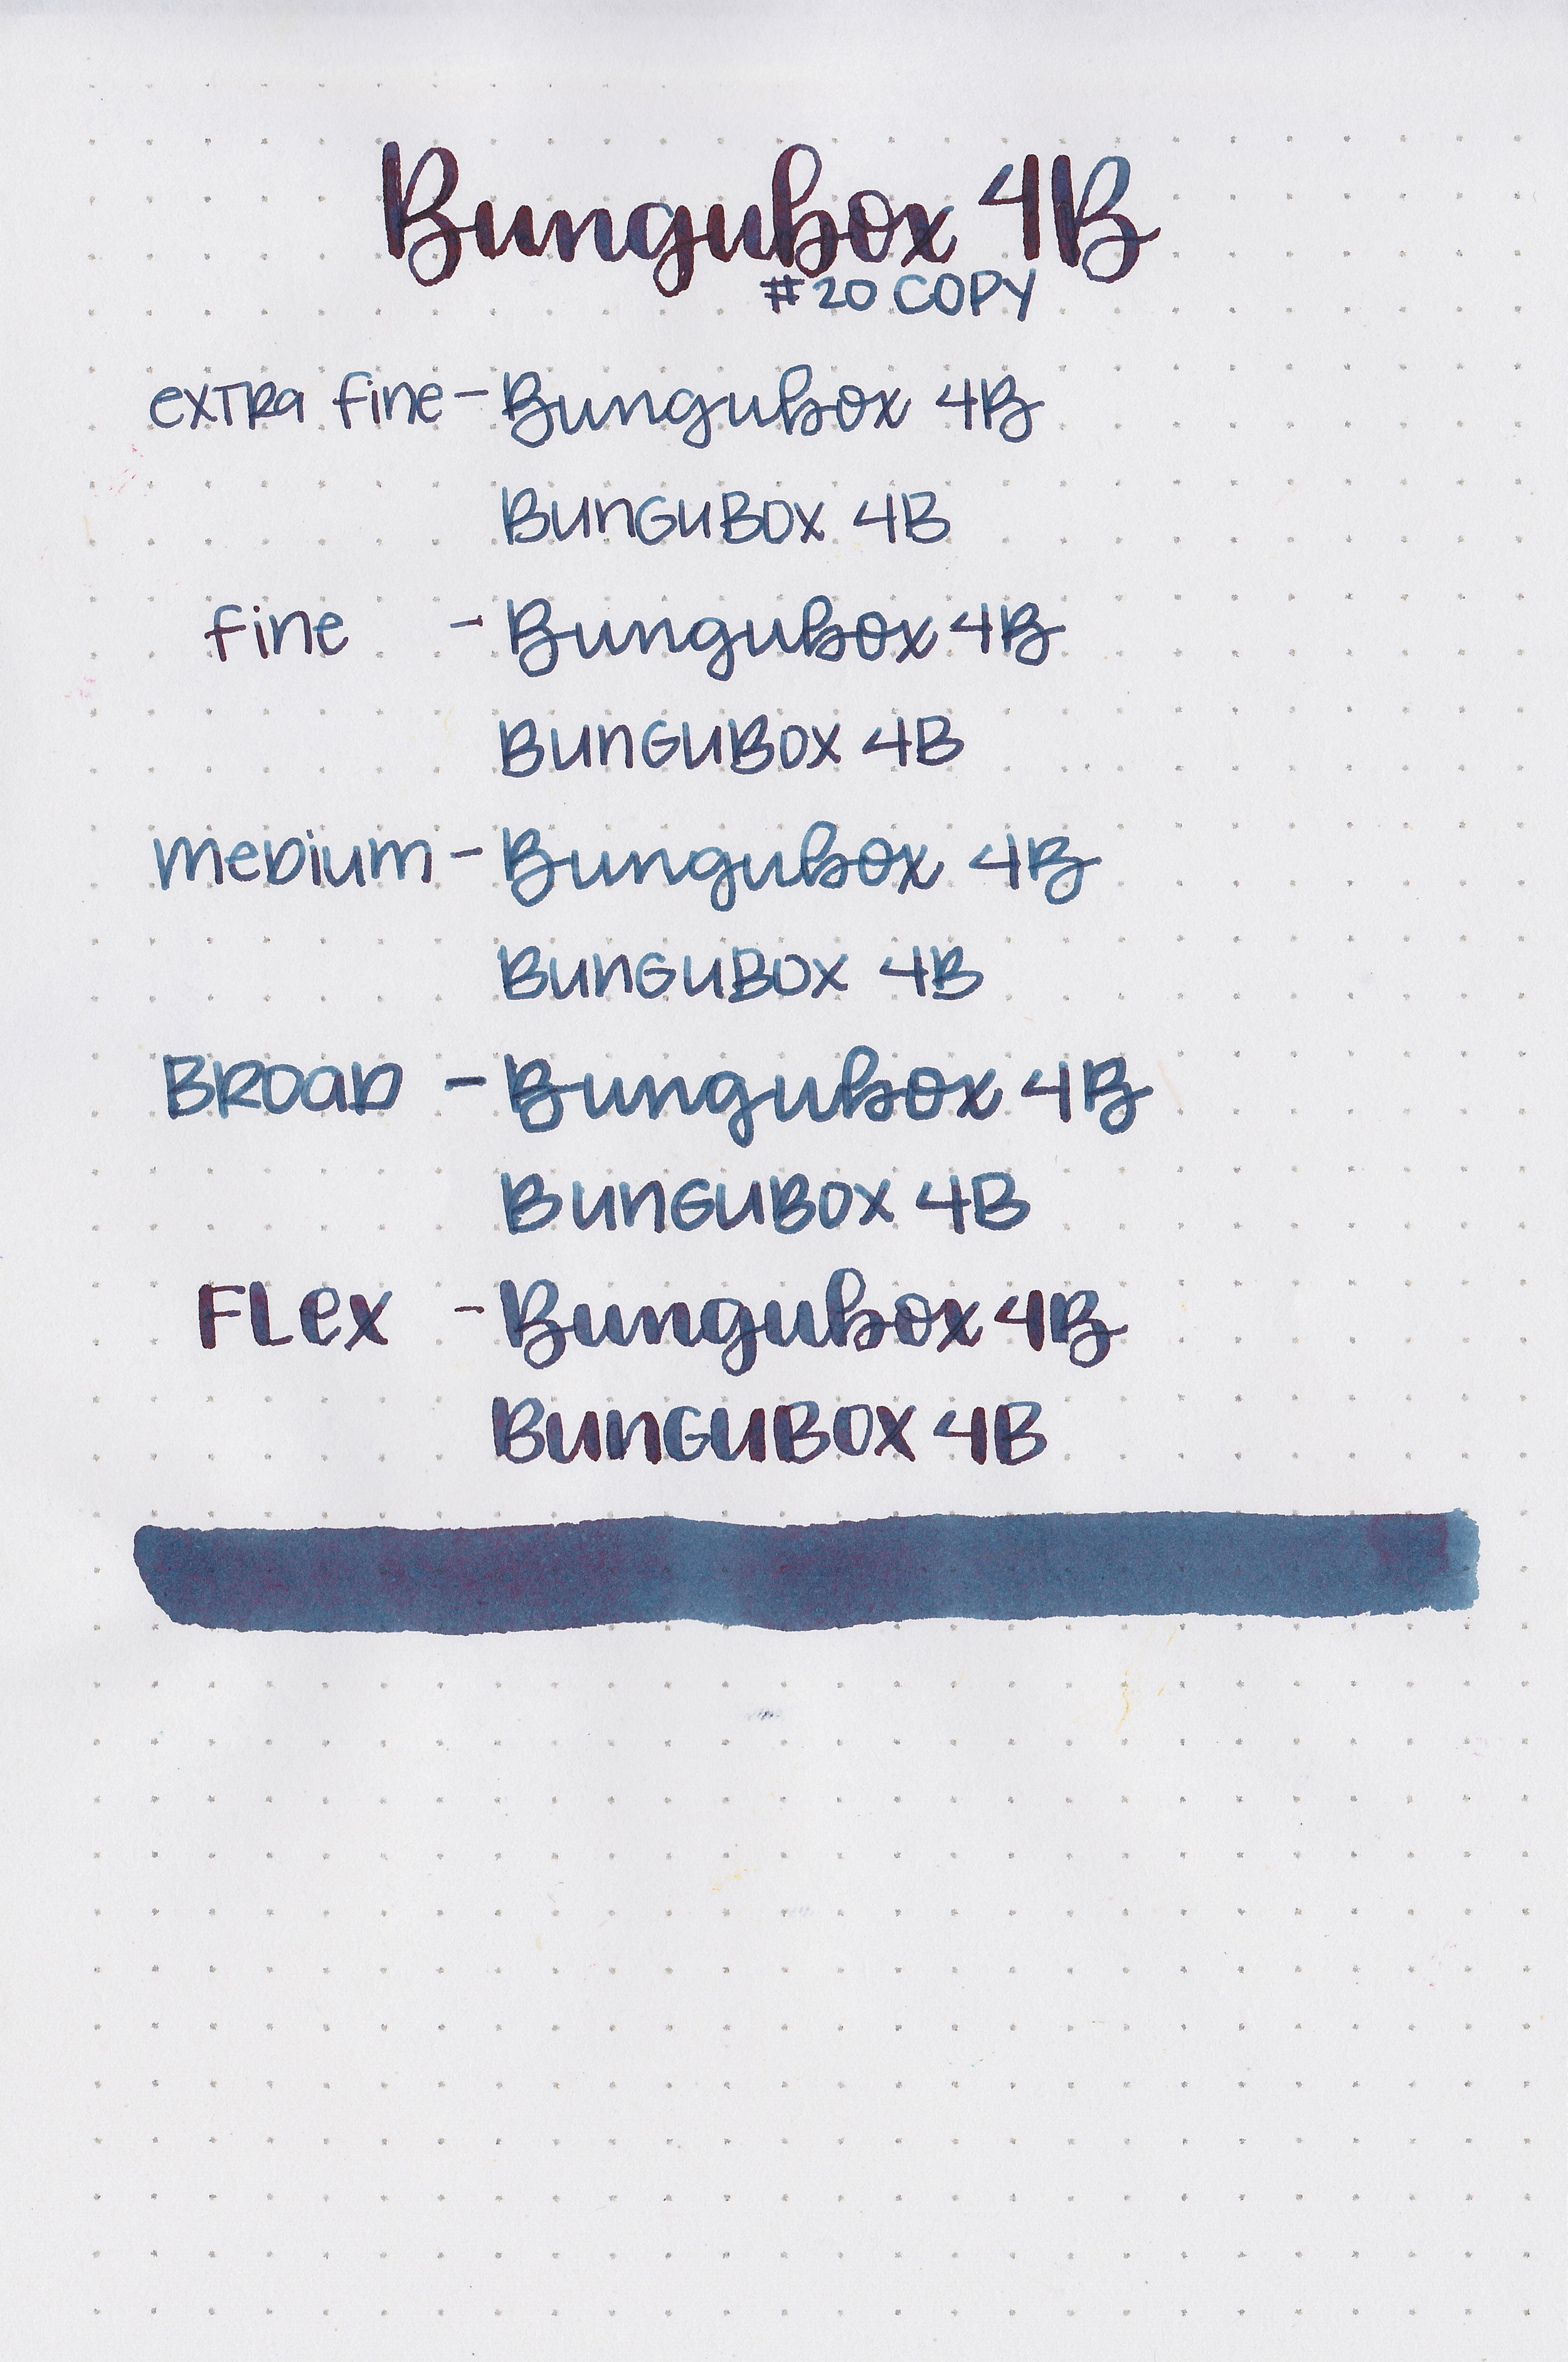 Bungubox 4B
#20 COPY
extra fine - Bungubox 4B
BUNGUBOX 4B
fine - Bungubox 4B
BUNGUBOX 4B
medium - Bungubox 4B
BUNGUBOX 4B
BROAD - Bungubox 4B
BUNGUBOX 4B
FLex - Bungubox 4B
BUNGUBOX 4B